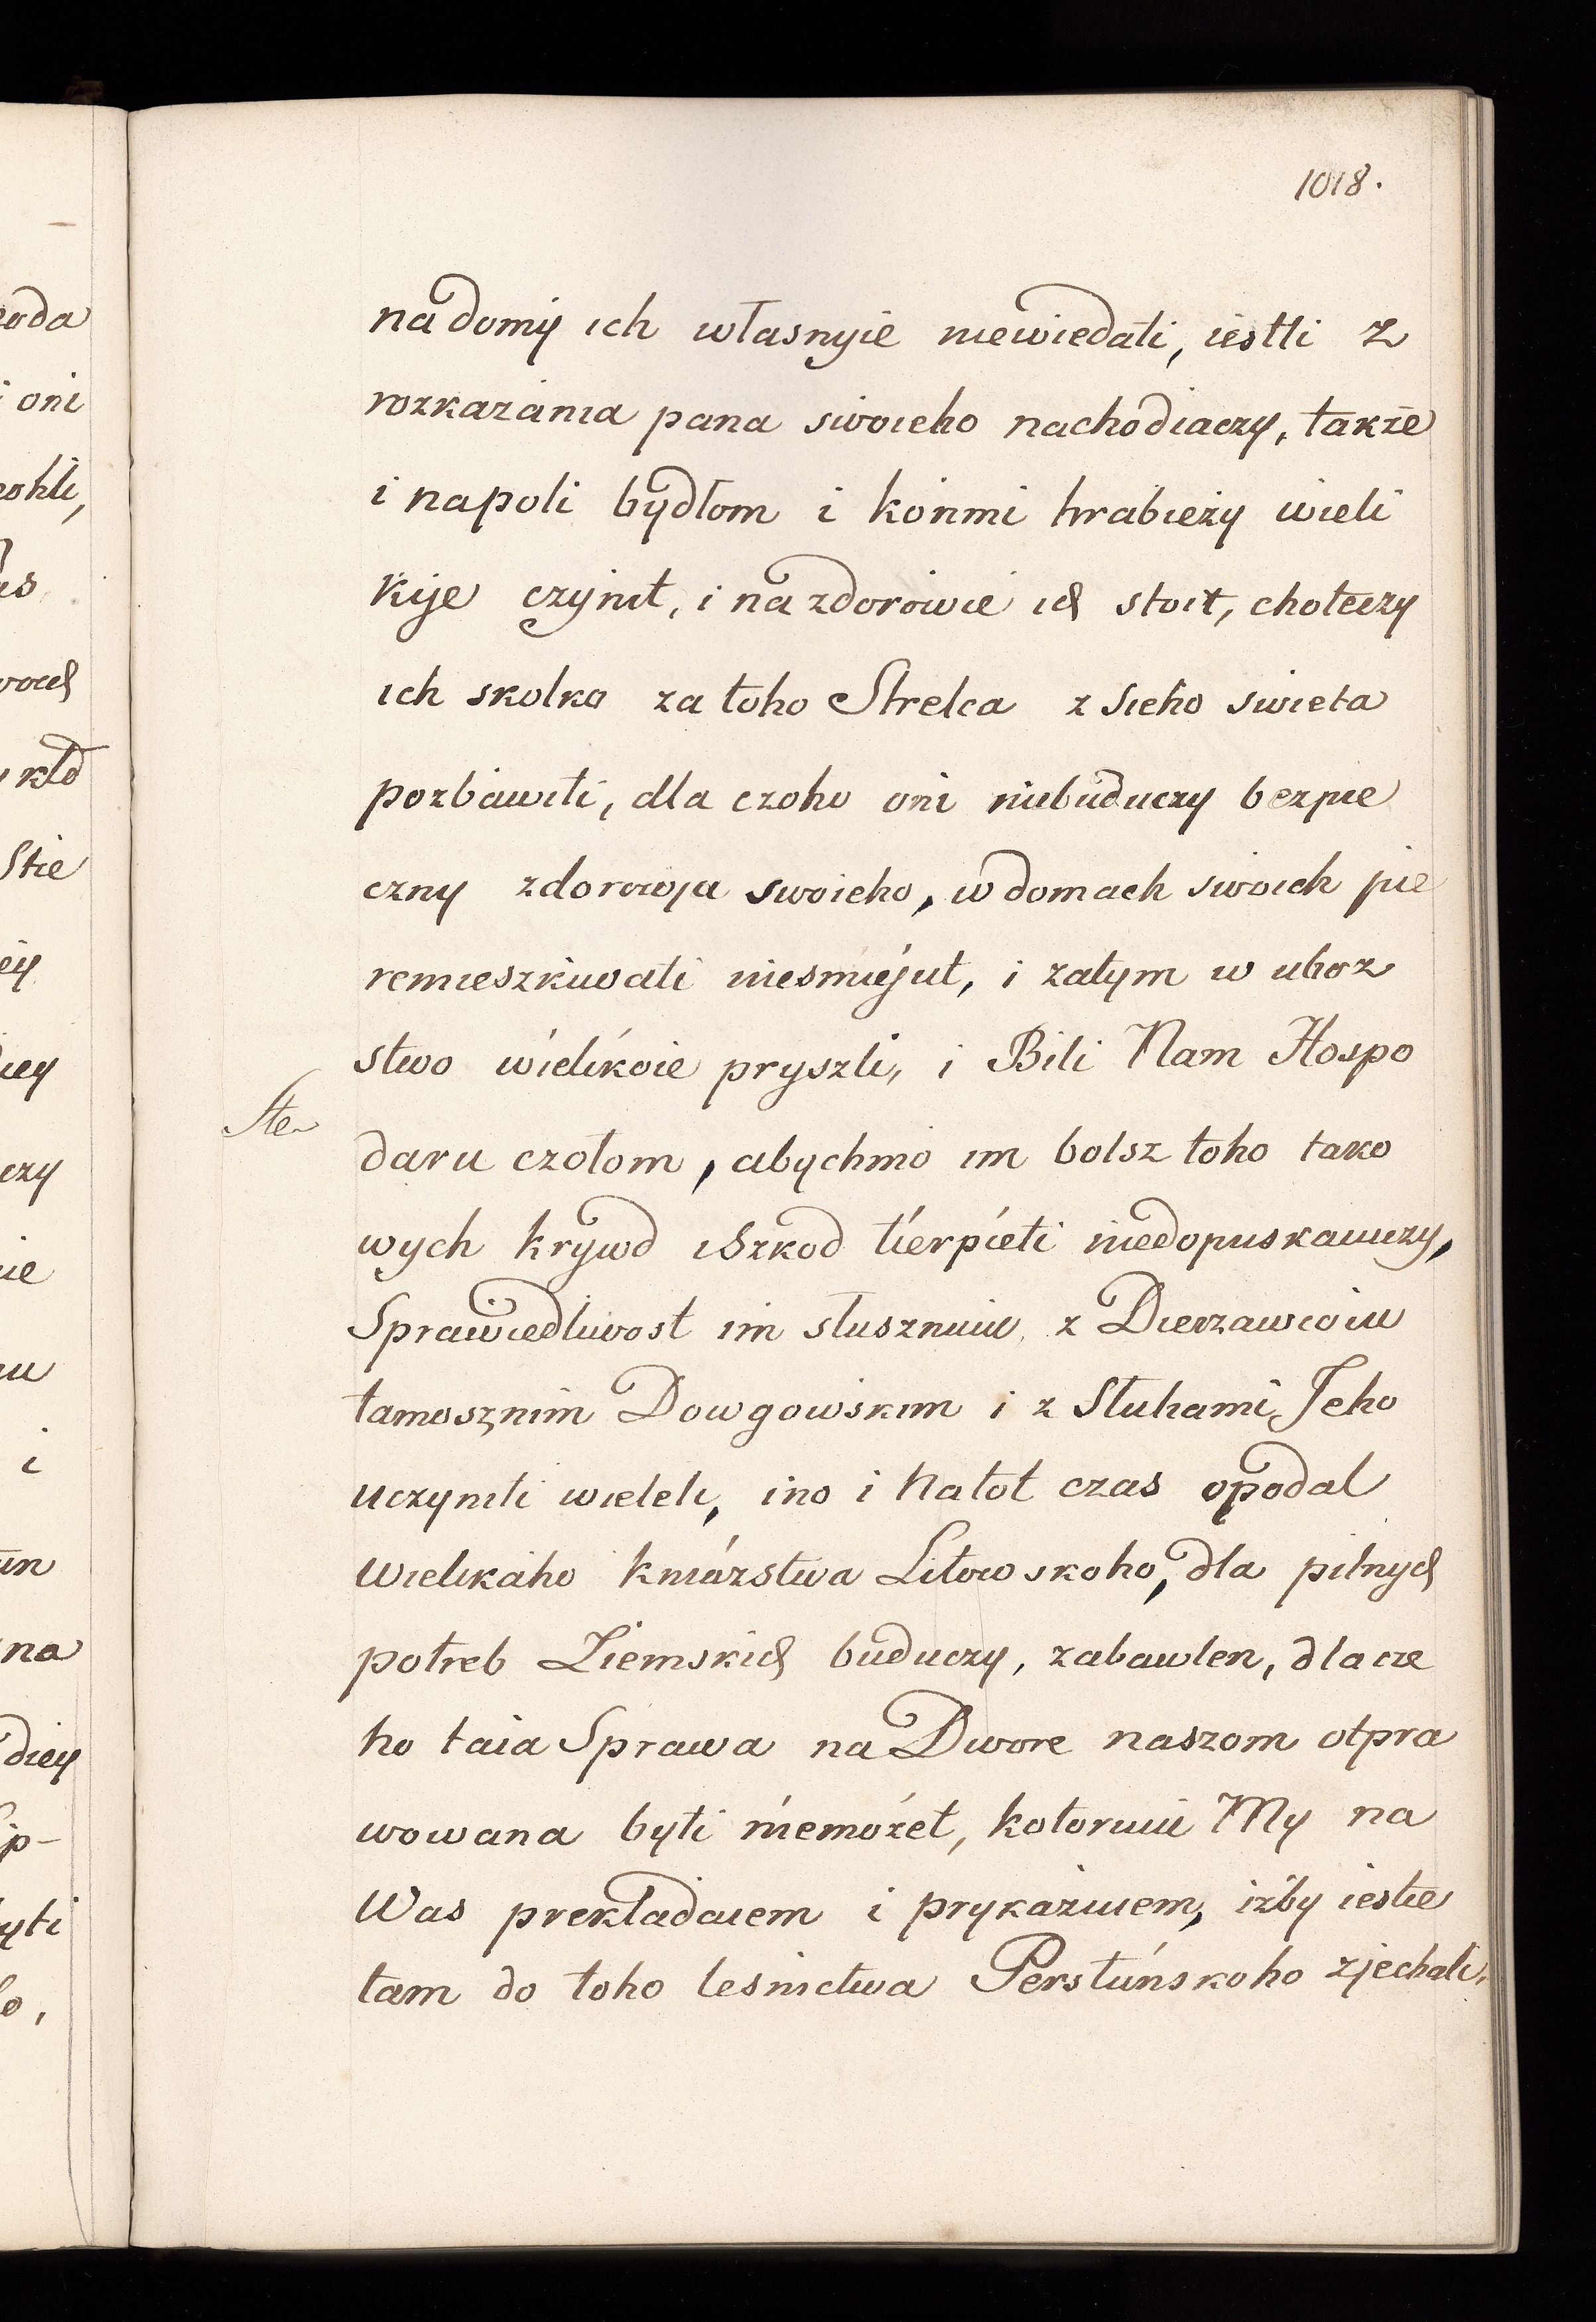 1018.
na domy ich własnyie niewiedali, iestli z
rozkazania pana swoieho nachodiaczy, także
i napoli bydłom i końmi hrabieży wieli
kije czynit, i na zdorowie ich stoit, choteczy
ich skolko za toho Strelca z sieho swieta
pozbawili, dla czoho oni niebuduczy bezpie
czny zdorowja swoieho, w domach swoich pie
remieszkiwati niesmiejut, i zatym w uboz
stwo wielikoie pryszli, i Bili Nam Hospo
Ste
daru czołom, abychmo im bolsz toho tako
wych krywd i szkod tierpieti niedopuskaiuczy,
Sprawiedliwost im słusznuiu z Dierzawcoiu
tamosznim Dowgowskim i z Słuhami Jeho
uczyniti wieleli, ino i Natot czas opodal
Wielikaho kniazstwa Litowskoho, dla pilnych
potreb Ziemskich buduczy, zabawlen, dla cze
ho taia Sprawa na Dwore naszom otpra
wowana byti niemożet, kotoruiu My na
Was prekładaiem i prykazuiem, iżby ieste
tam do toho lesnictwa Perstuńskoho zjechali,
oda
oni
kłd
Stie
czy
i
na
diey
yti